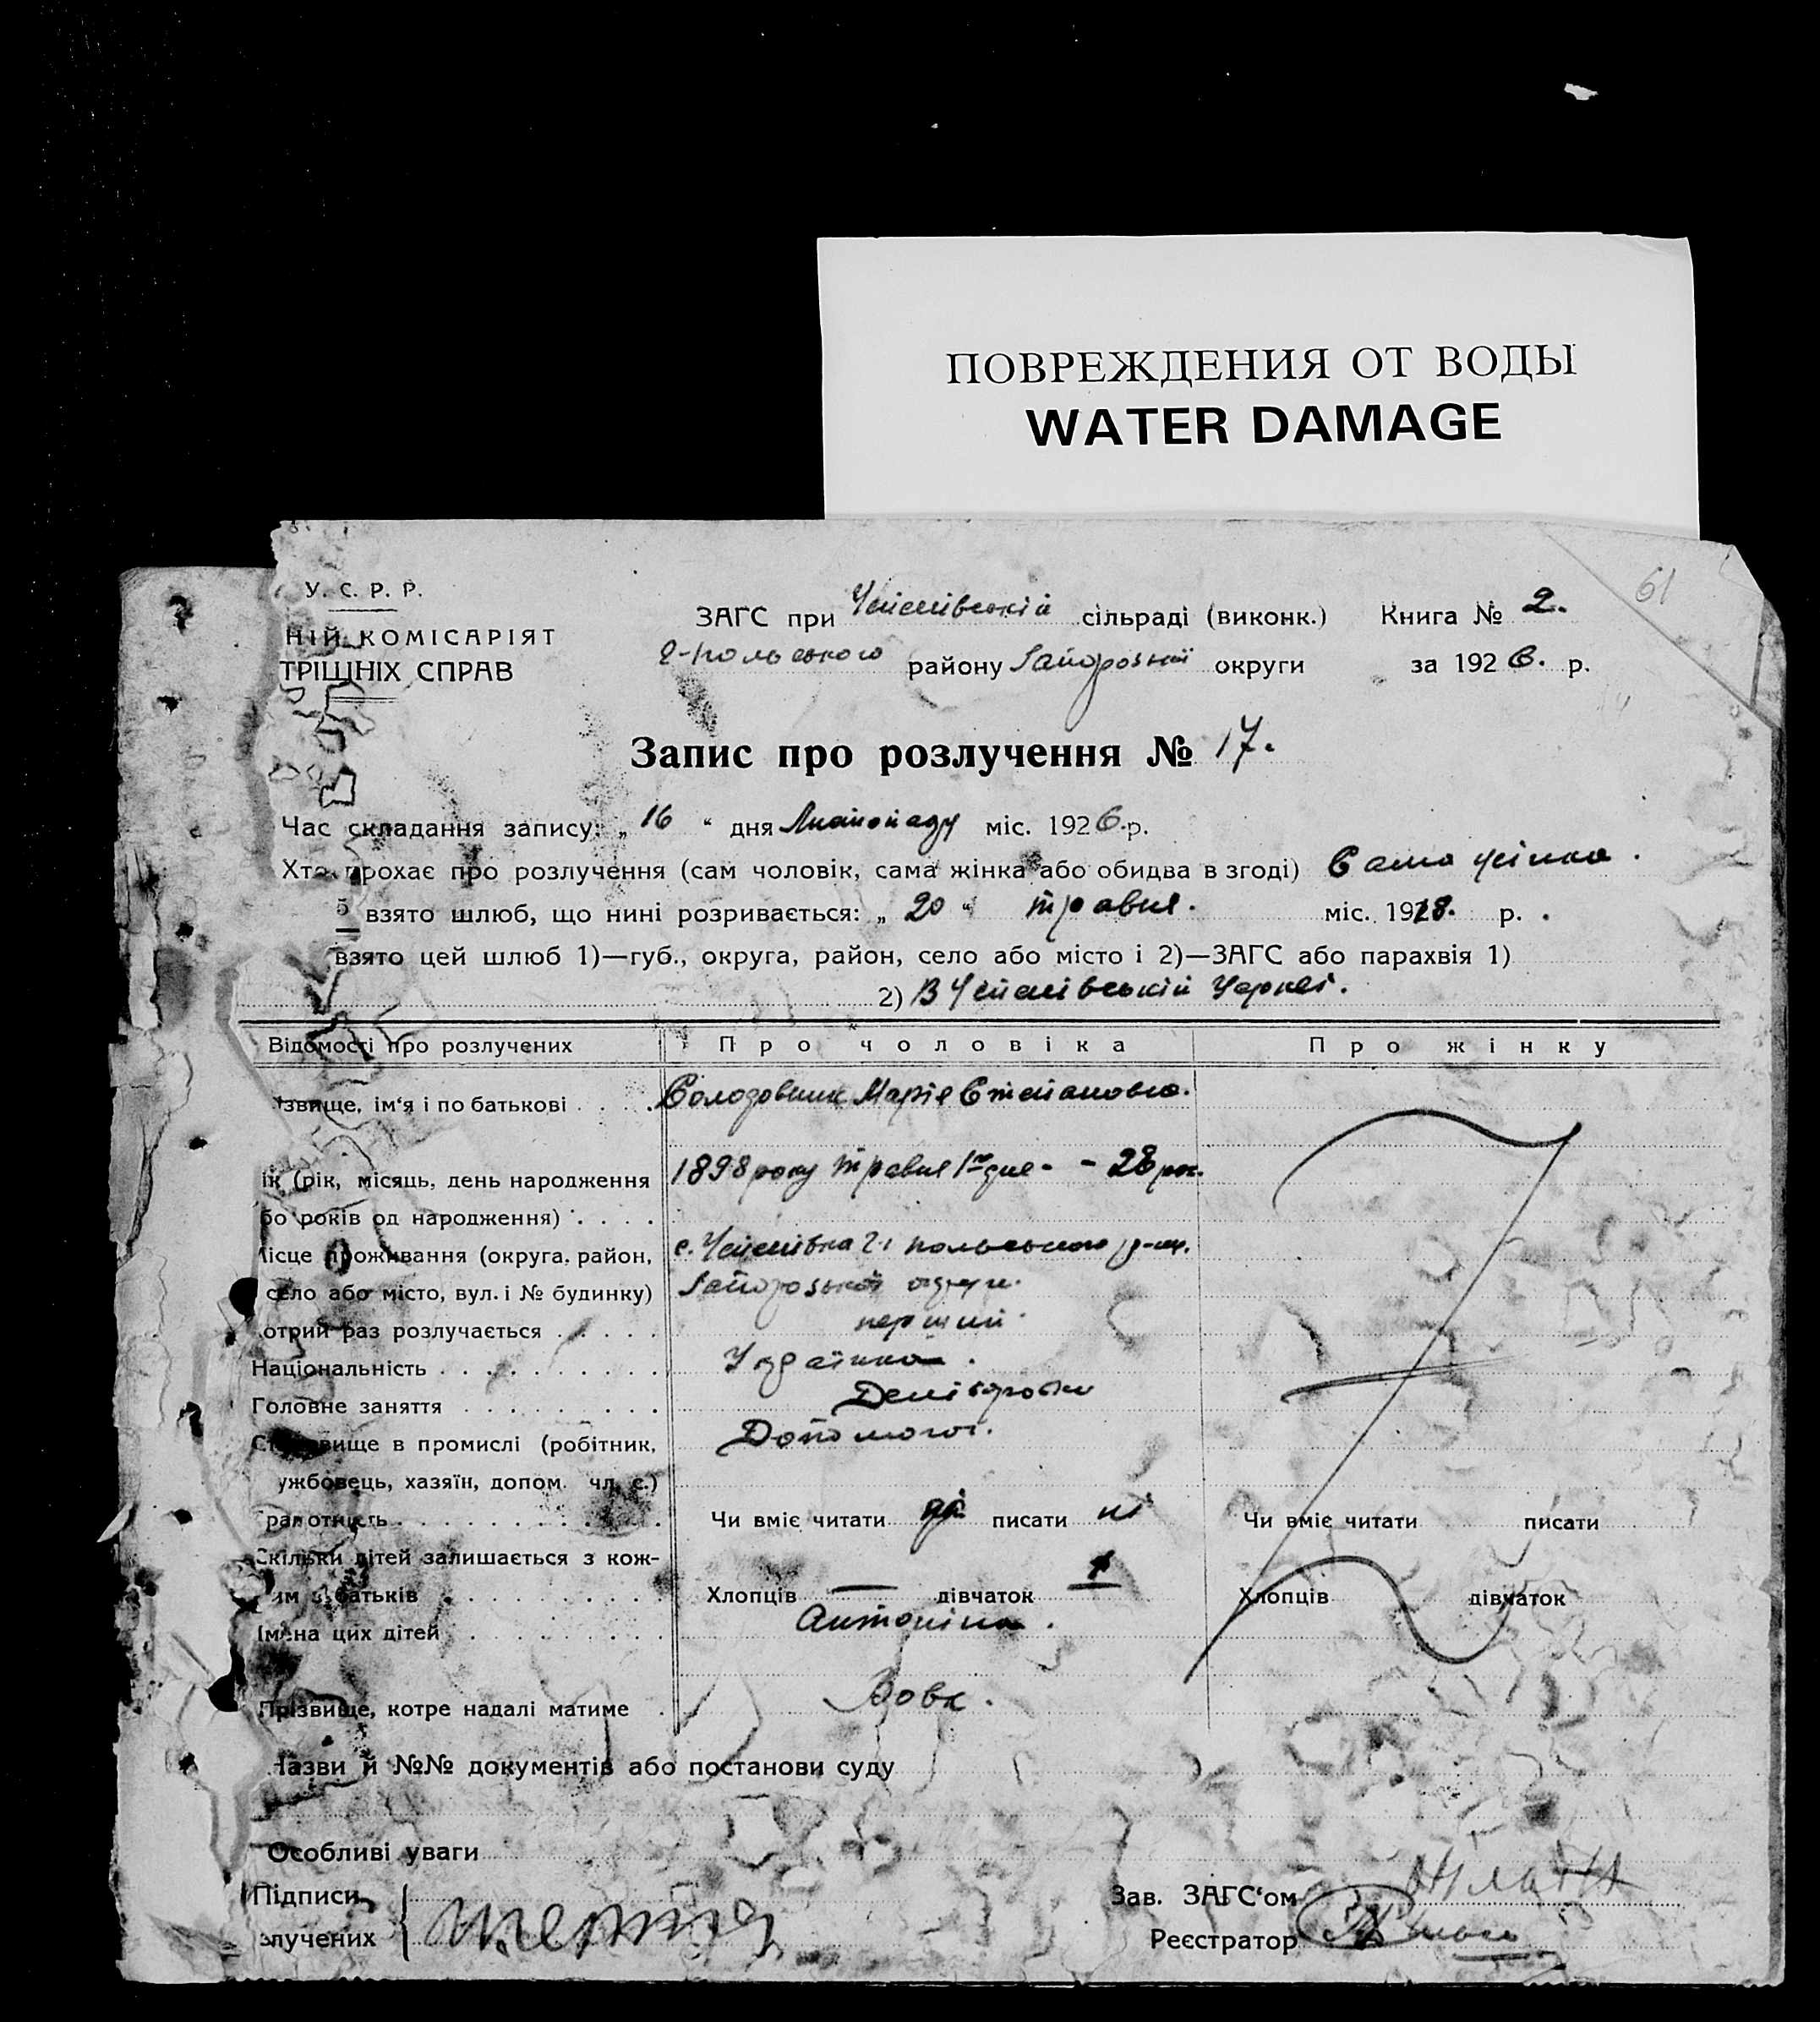 ПОВРЕЖДЕНИЯ ОТ ВОДЫ
WATER DAMAGE
61
У. С. Р. Р.
НІЙ КОМІСАРІЯТ
ТРІШНІХ СПРАВ
ЗАГС при Успенівській сільраді (виконк.) Книга № 2.
г-польського району Запорозької округи за 1926. р.
Запис про розлучення № 17.
Час складання запису: „ 16 “ дня Листопаду міс. 1926.р.
Хто прохає про розлучення (сам чоловік, сама жінка або обидва в згоді) Сама жінка.
взято шлюб, що нині розривається: „ 20 “ травня. міс. 1918. р.
взято цей шлюб 1)—губ., округа, район, село або місто і 2)—ЗАГС або парахвія 1)
2) В Успенівській Церкві.
Відомості про розлучених Про чоловіка Про жінку
ізвище, ім‘я і по батькові Солодовник Марія Степановна.
ік (рік, місяць, день народження 1898 року травня 1го дня - - 28 рок.
бо років од народження)
ісце проживання (округа, район, с. Успенівка г. польського р-ну.
село або місто, вул. і № будинку) Запорозької округи.
отрий раз розлучається перший.
Національність Українка.
Головне заняття
Становище в промислі (робітник, Допомогає.
ужбовець, хазяїн, допом. чл. с.)
рамотність Чи вміє читати ні писати ні Чи вміє читати писати
Скільки дітей залишається з кож-
им з батьків Хлопців — дівчаток 1 Хлопців дівчаток
Імена цих дітей Антоніна.
Прізвище, котре надалі матиме Вовк.
Назви й №№ документів або постанови суду
Особливі уваги
Підписи Зав. ЗАГС‘ом
злучених Реєстратор